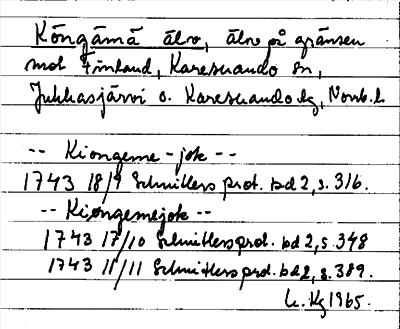 Köngämä älv, älv på gränsen
mot Finland, Karesuando sn,
Jukkasjärvi o. Karesuando tg, Norrb. l.
-- Kiongeme-jok --
1743 18/9 Schnitlers prot. bd 2, s. 316.
-- Kiongemejok --
1743 17/10 Schnitlers prot. bd 2, s 348
1743 11/11 Schnitlers prot. bd 2, s. 389.
Kg 1965.